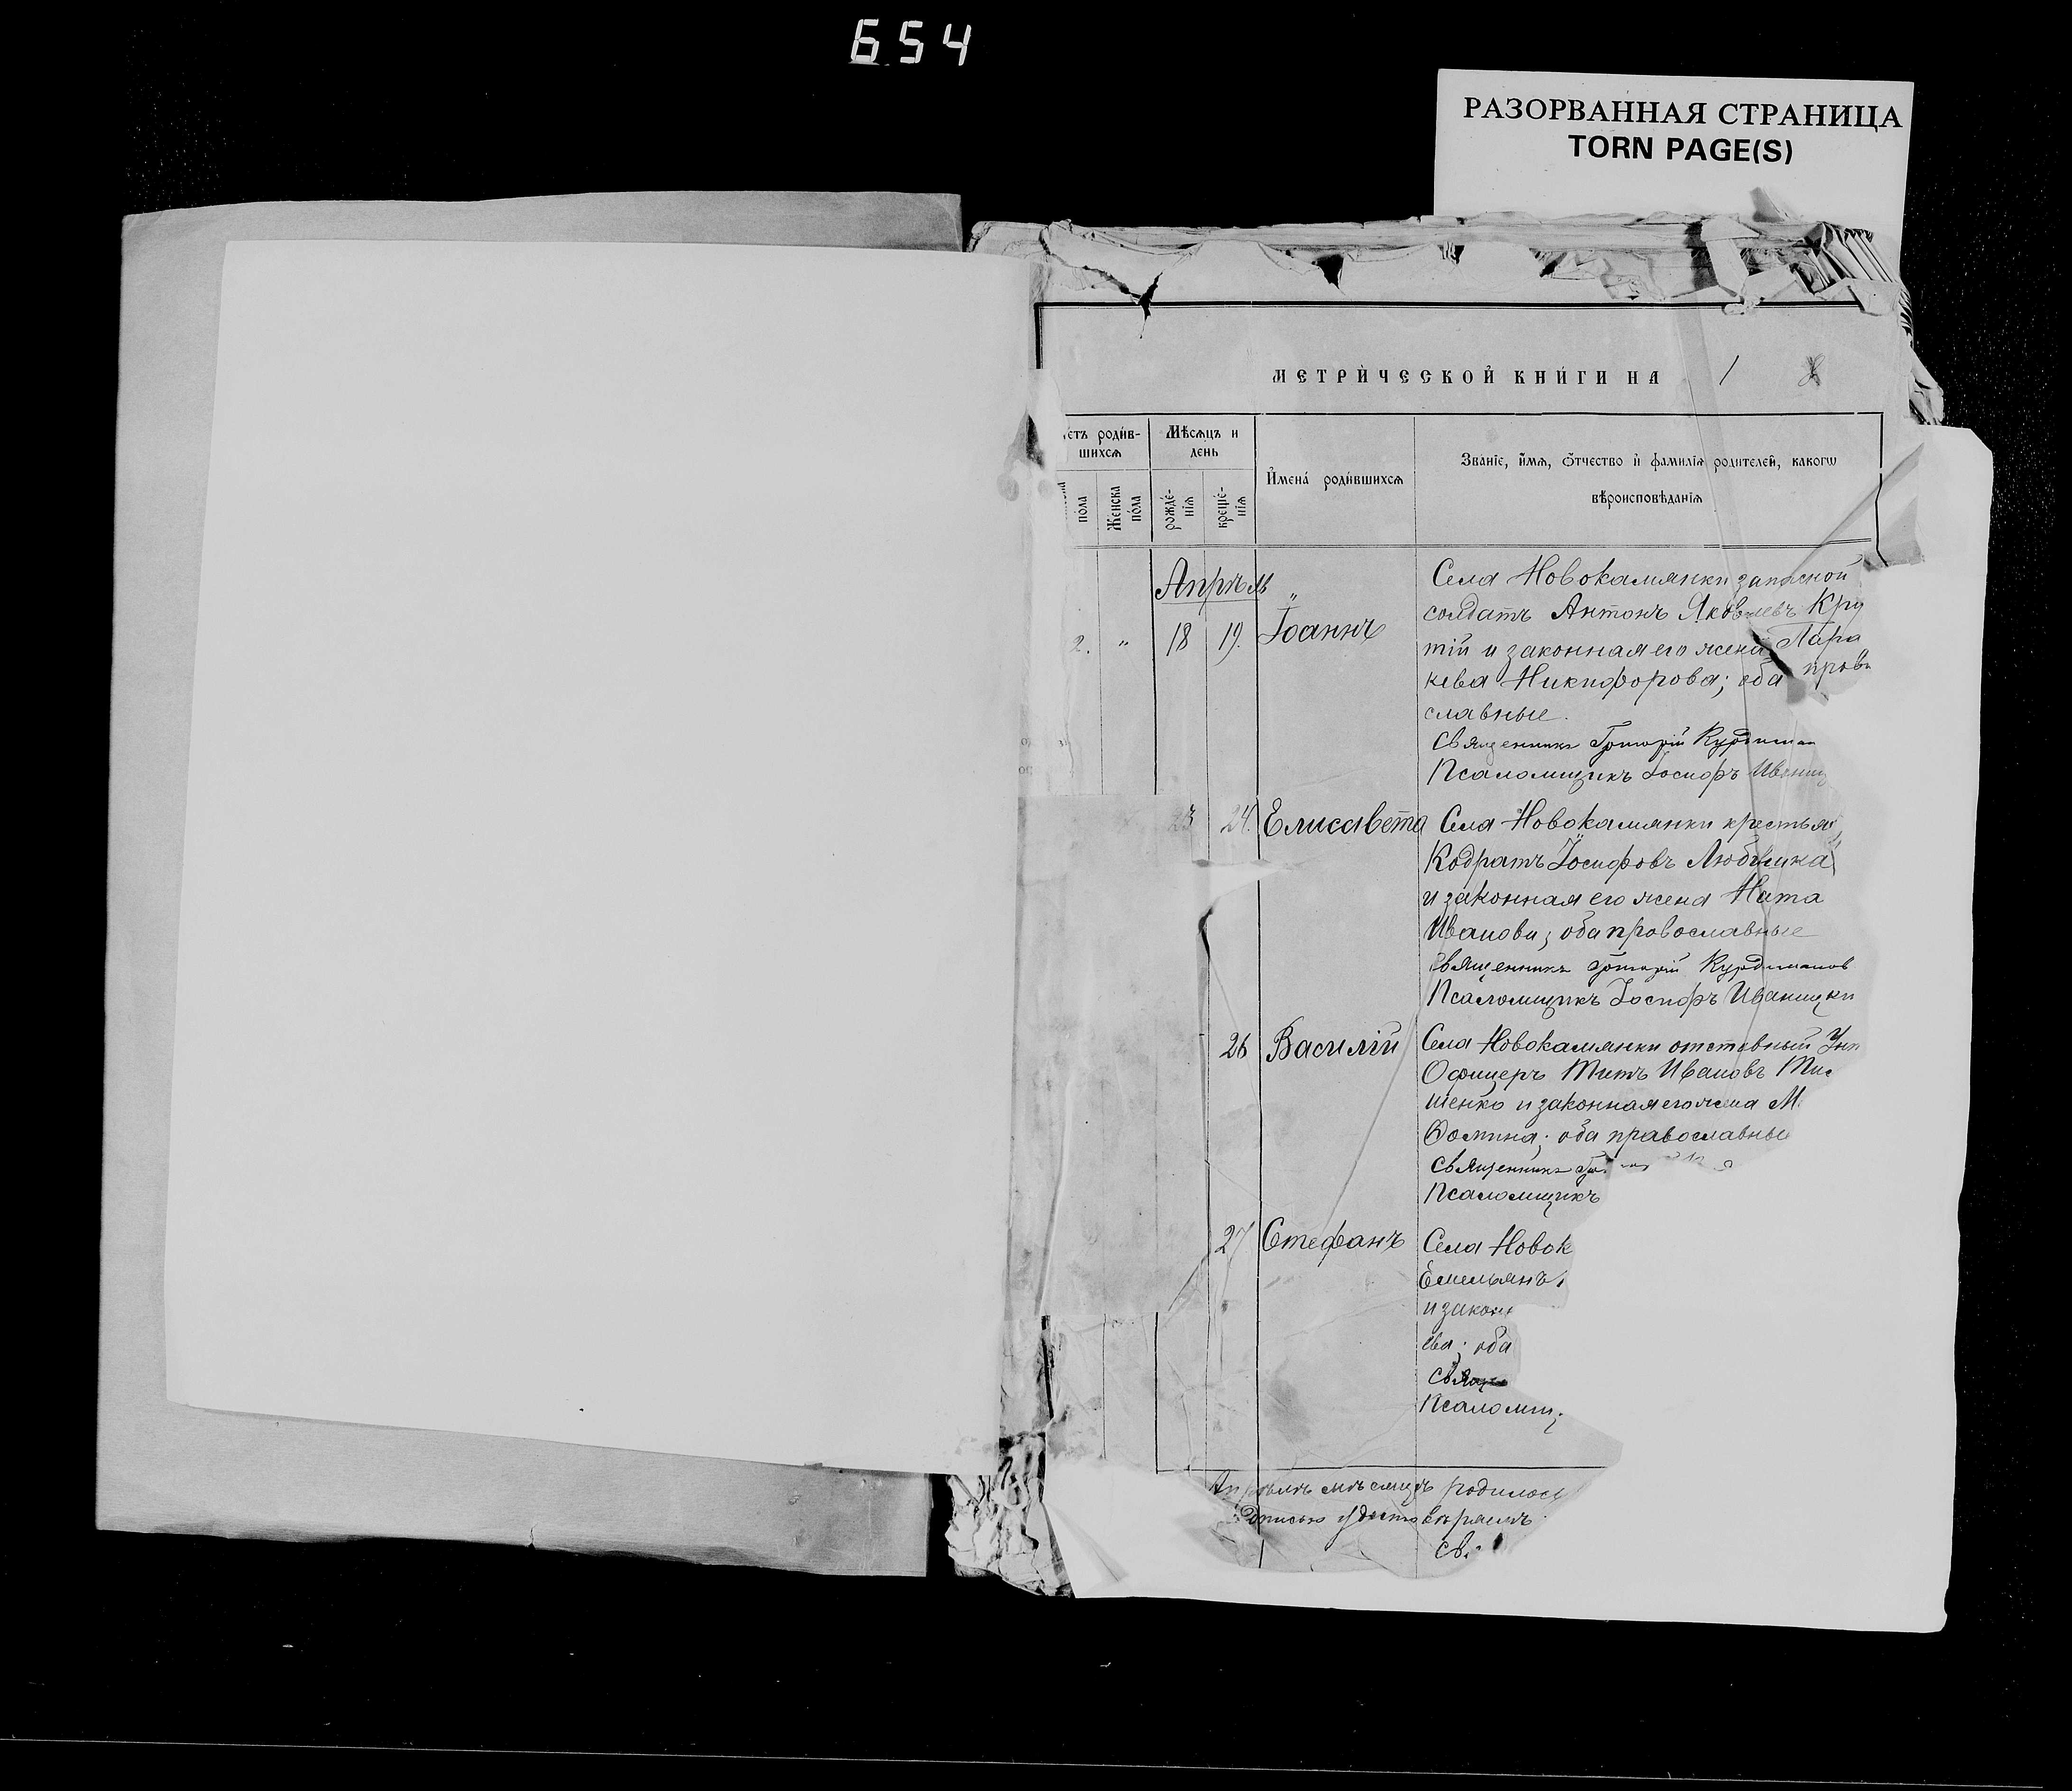 654
РАЗОРВАННАЯ СТРАНИЦА
TORN PAGE(S)
МЕТРИ́ЧЕСКОЙ КНИ́ГИ НА 1 8
етъ роди́в-
шихсѧ
Мѣсѧцъ и
день
И҆мена́ роди́вшихсѧ
Званїе, и҆́мѧ, ѻ҆́тчество и҆ фамилїѧ родителей, какогѡ
вѣроисповѣданїѧ
по́ла
Же́нска
по́ла
рожде́-
нїѧ
креще́-
нїѧ
Апрѣль „
2. „ 18 19. Іоаннъ
Села Новокамянки запасной
солдатъ Антонъ Яковлевъ Кру
тій и законная его жена Пара
кева Никифорова; оба право
славные.
Священникъ Григорій Курдиман
Псаломщикъ Іосифъ Иваниц
23 24. Елисавета
Села Новокамянки крестья
Кодратъ Іосифовъ Любчика
и законная его жена Ната
Иванова; оба провославные
Священникъ Григорій Курдиманов
Псаломщикъ Іосифъ Иваницки
26 Василій
Села Новокамянки отставный Унт
Офицеръ Титъ Ивановъ Ти
шенко и законная его жена М
Фомина; оба православные
Священникъ
Псаломщикъ
27 Стефанъ
Села Новок
Емельянъ
и закон
ева; оба
Свящ
Псаломщ
Апрѣлѣ мѣсяцѣ родилось
дписью удостовѣряемъ.
Св